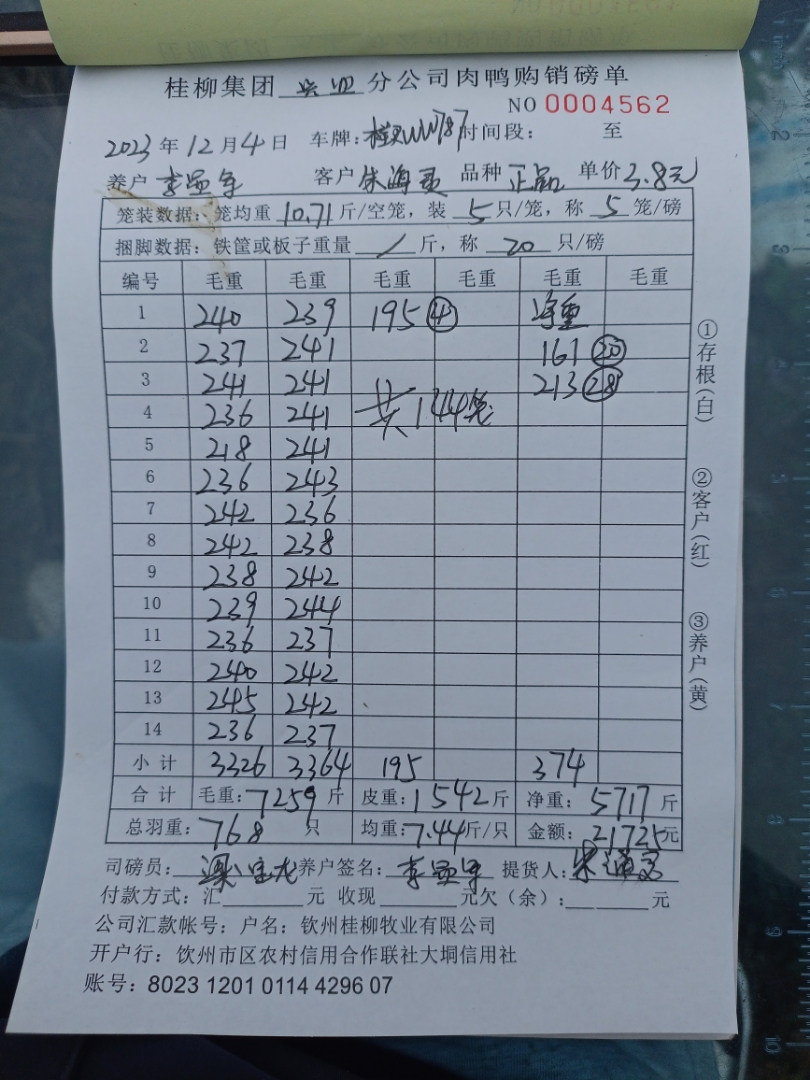 桂柳集团 分公司肉鸭购销磅单
NO 0004562
2023年12月4日 车牌: 时间段: 至
养户 李显军 客户 朱海 品种 正品 单价 3.8元
笼装数据: 笼均重 10.71 斤/空笼,装 5 只/笼,称 5 笼/磅
捆脚数据:铁筐或板子重量 / 斤,称 20 只/磅
编号 毛重 毛重 毛重 毛重 毛重 毛重
1 240 239 195 ④ 净重
2 237 241 161 ⑳
3 241 241 213 ㉘
4 236 241 共144笼
5 218 241
6 236 243
7 242 236
8 242 238
9 238 242
10 239 244
11 236 237
12 240 242
13 245 242
14 236 237
小计 3326 3364 195 374
合计 毛重: 7259 斤 皮重: 1542 斤 净重: 5717 斤
总羽重: 768 只 均重: 7.44 斤/只 金额: 21725 元
司磅员: 养户签名: 李显军 提货人:
付款方式:汇 元 收现 元欠(余): 元
公司汇款帐号:户名:钦州桂柳牧业有限公司
开户行:钦州市区农村信用合作联社大垌信用社
账号:8023 1201 0114 4296 07
①存根(白)
②客户(红)
③养户(黄)